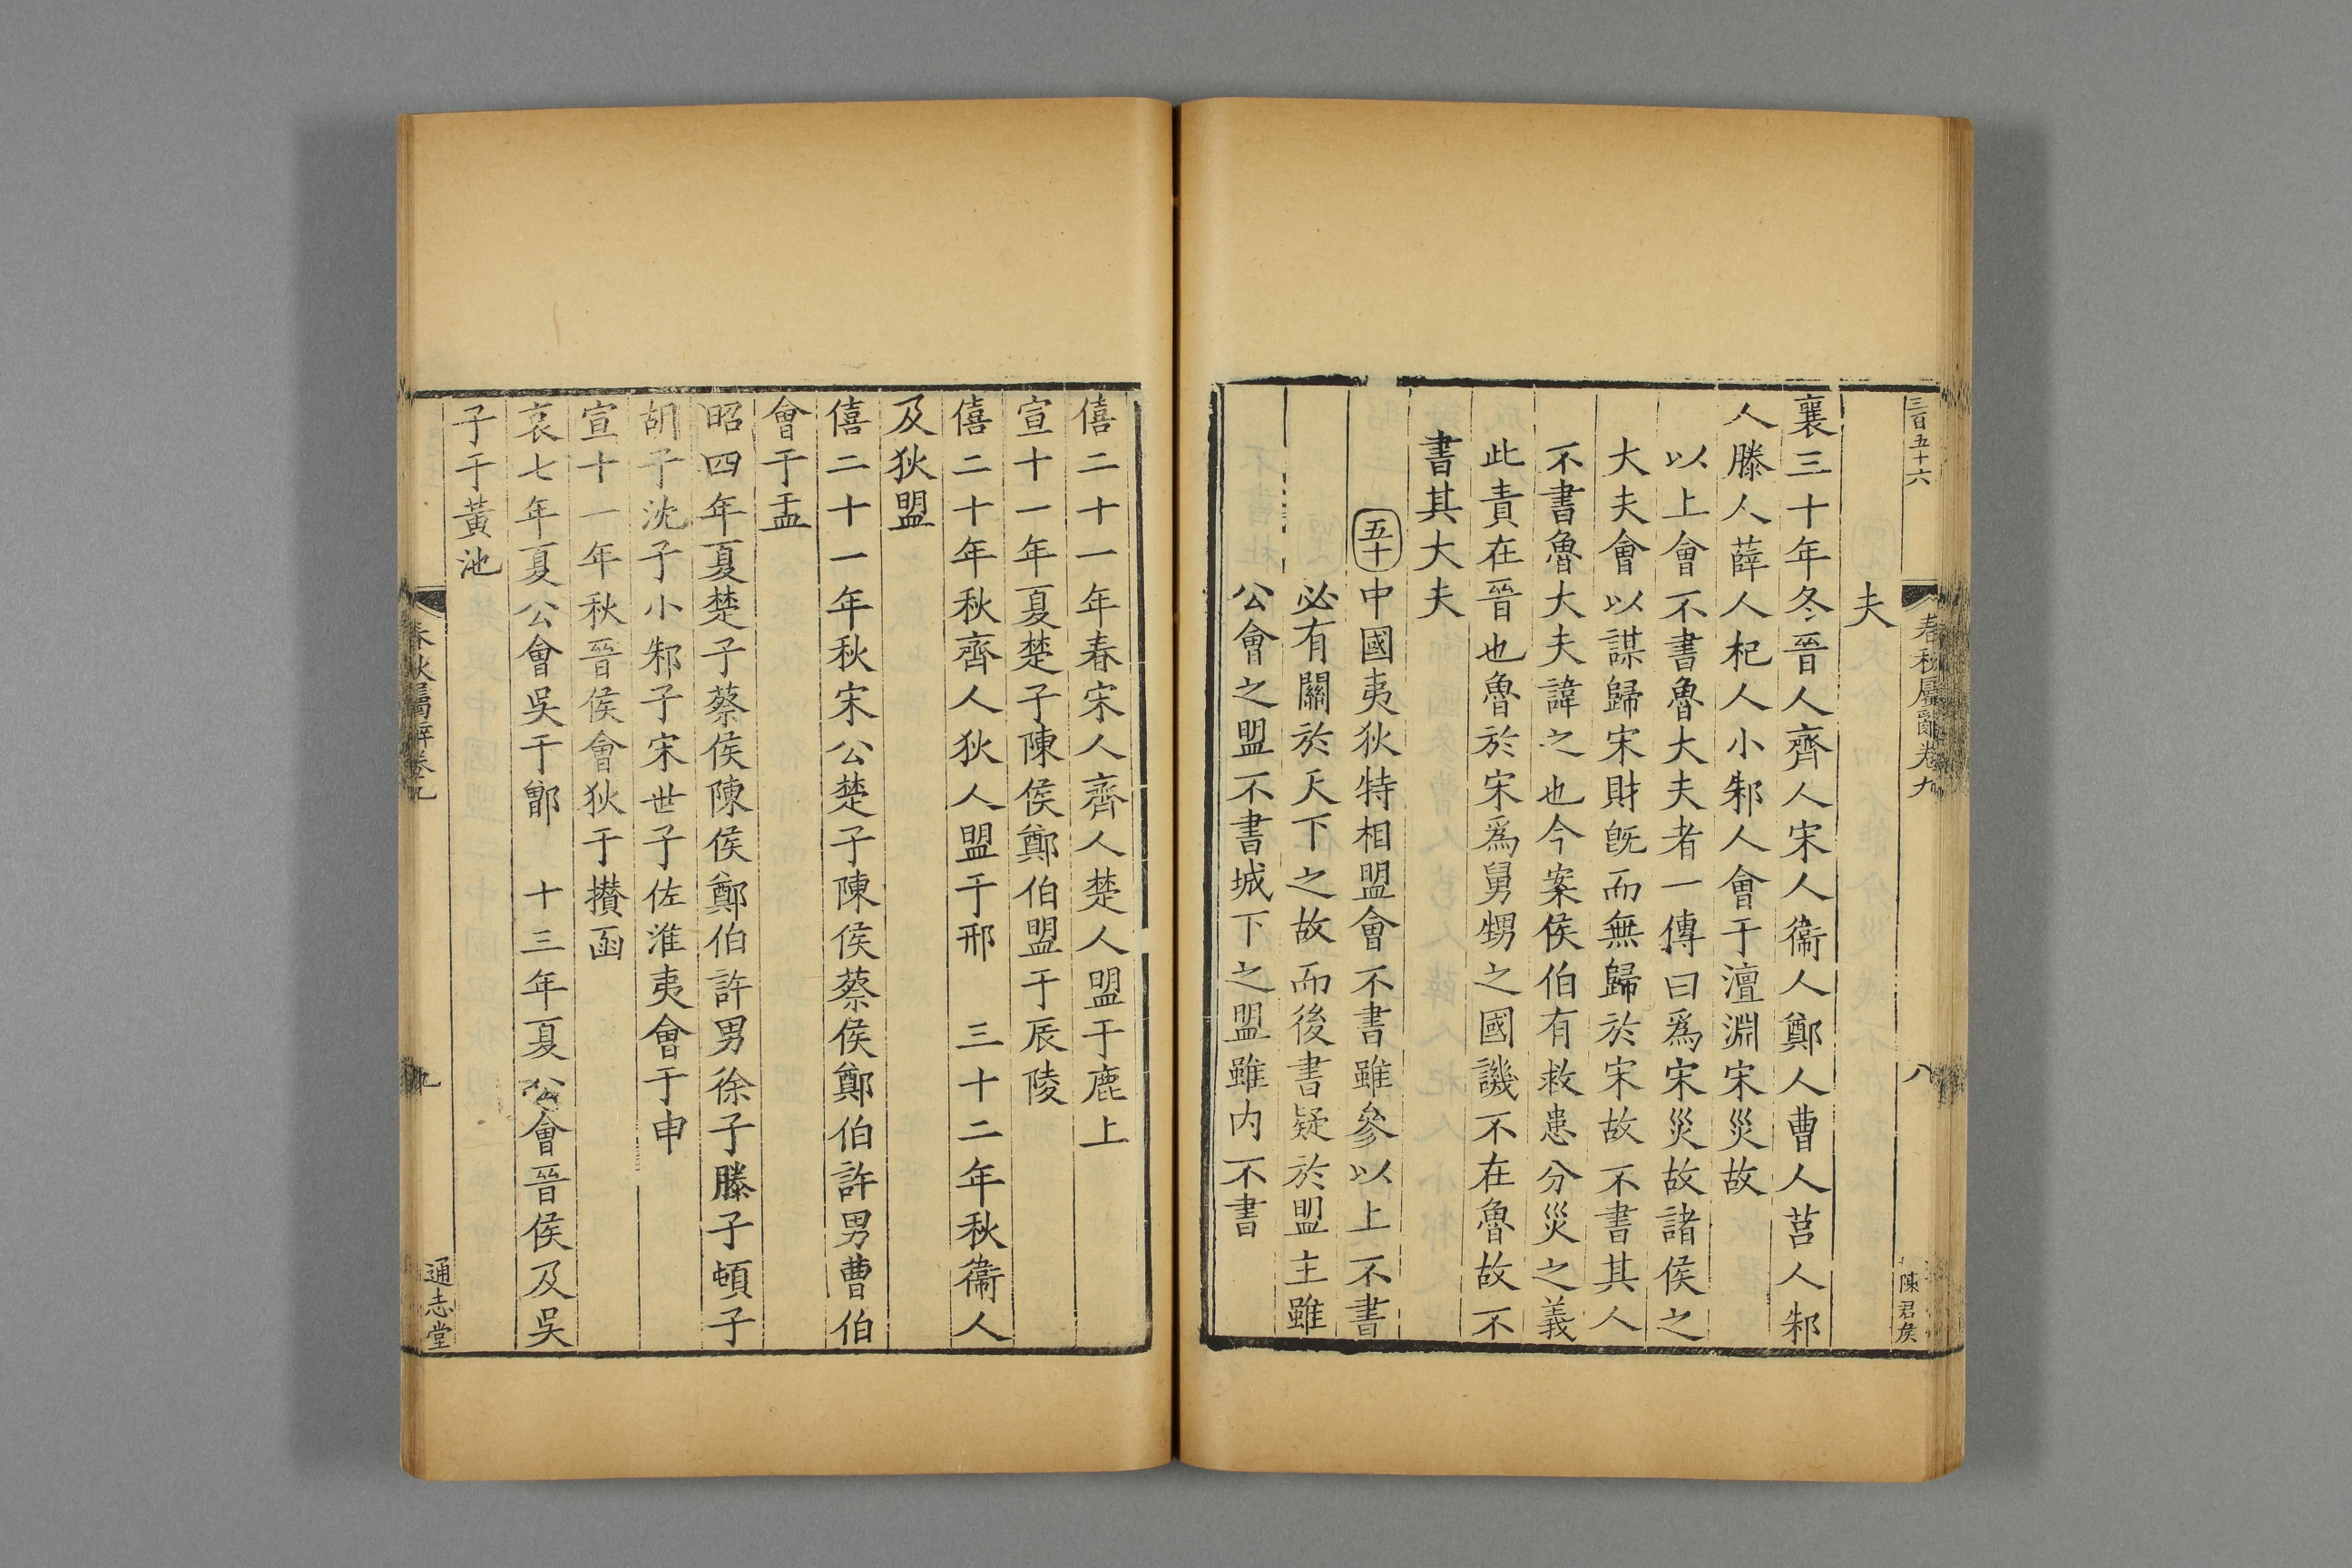 三百五十六
春秋屬辭卷九
八
陳君侯
夫
襄三十年冬晉人齊人宋人衞人鄭人曹人莒人邾
人滕人薛人杞人小邾人會于澶淵宋災故
以上會不書魯大夫者一傳曰爲宋災故諸侯之
大夫會以謀歸宋財旣而無歸於宋故不書其人
不書魯大夫諱之也今案侯伯有救患分災之義
此責在晉也魯於宋爲舅甥之國譏不在魯故不
書其大夫
五十中國夷狄特相盟會不書雖參以上不書
必有關於天下之故而後書疑於盟主雖
公會之盟不書城下之盟雖内不書
僖二十一年春宋人齊人楚人盟于鹿上
宣十一年夏楚子陳侯鄭伯盟于辰陵
僖二十年秋齊人狄人盟于邢　三十二年秋衞人
及狄盟
僖二十一年秋宋公楚子陳侯蔡侯鄭伯許男曹伯
會于盂
昭四年夏楚子蔡侯陳侯鄭伯許男徐子滕子頓子
胡子沈子小邾子宋世子佐淮夷會于申
宣十一年秋晉侯會狄于攅函
哀七年夏公會吳于鄫　十三年夏公會晉侯及吳
子于黃池
春秋屬辭卷九
九
通志堂